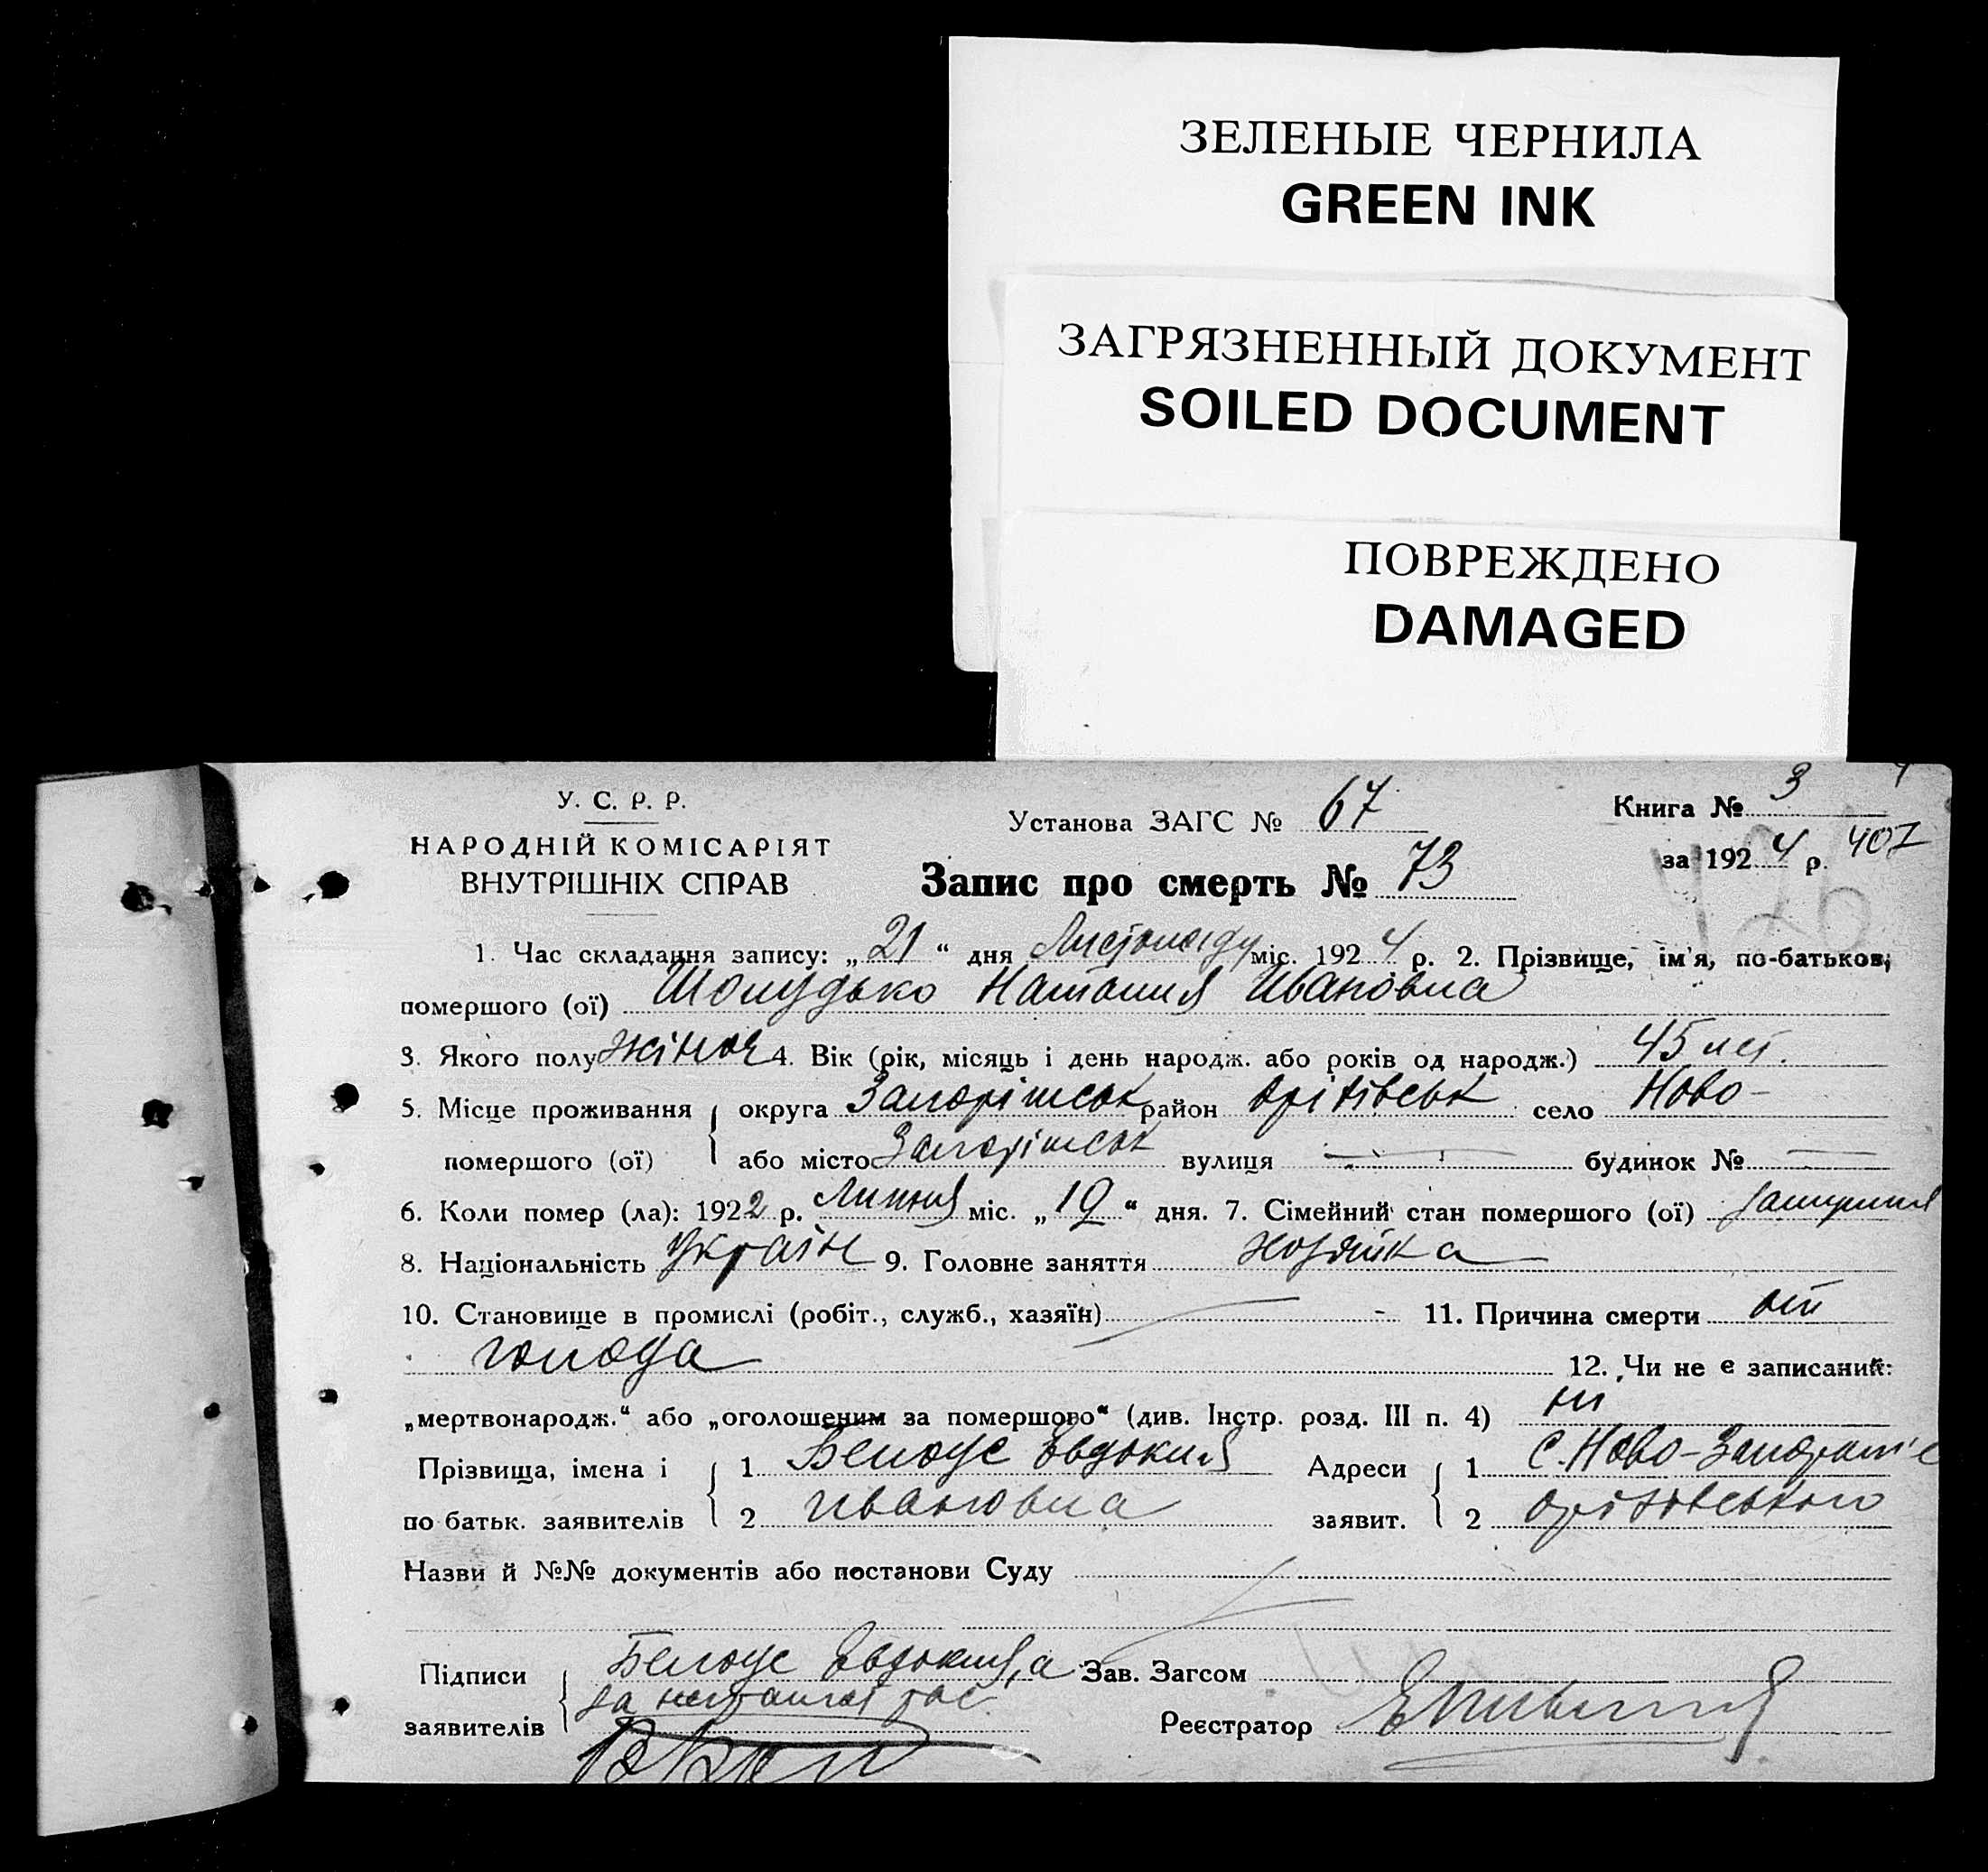 ЗЕЛЕНЫЕ ЧЕРНИЛА
GREEN INK
ЗАГРЯЗНЕННЫЙ ДОКУМЕНТ
SOILED DOCUMENT
ПОВРЕЖДЕНО
DAMAGED
У. С. Р. Р.
НАРОДНІЙ КОМІСАРІЯТ
ВНУТРІШНІХ СПРАВ
Установа ЗАГС № 67
Книга № 3
за 1924 р. 407
Запис про смерть № 73
1. Час складання запису: „21“ дня Листопаду міс. 1924 р. 2. Прізвище, ім'я, по-батькові
помершого (ої) Шолудько Наталия Ивановна
3. Якого полу жіноч 4. Вік (рік, місяць і день народж. або років од народж.) 45 лет.
5. Місце проживання округа Запорішськ район Оріхівськ село Ново-
помершого (ої) або місто Запорішськ вулиця — будинок № —
6. Коли помер (ла): 1922 р. Липня міс. „19“ дня. 7. Сімейний стан помершого (ої) замужня
8. Національність Україн 9. Головне заняття хозяйка
10. Становище в промислі (робіт., служб., хазяїн) — 11. Причина смерти от
голода 12. Чи не є записаний:
„мертвонародж.“ або „оголошеним за помершого“ (див. Інстр. розд. III п. 4) ні
Прізвища, імена і 1 Белоус Евдокия Адреси 1 с. Ново-Запоріж
по батьк. заявителів 2 Ивановна заявит. 2 Оріхівського
Назви й №№ документів або постанови Суду
Підписи Белоус Евдокия, а Зав. Загсом
за неграмот рос.
заявителів Реєстратор